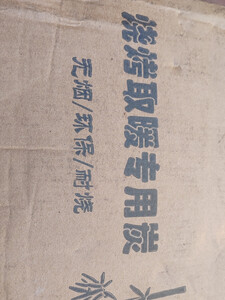 烧烤取暖专用炭
无烟/环保/耐烧